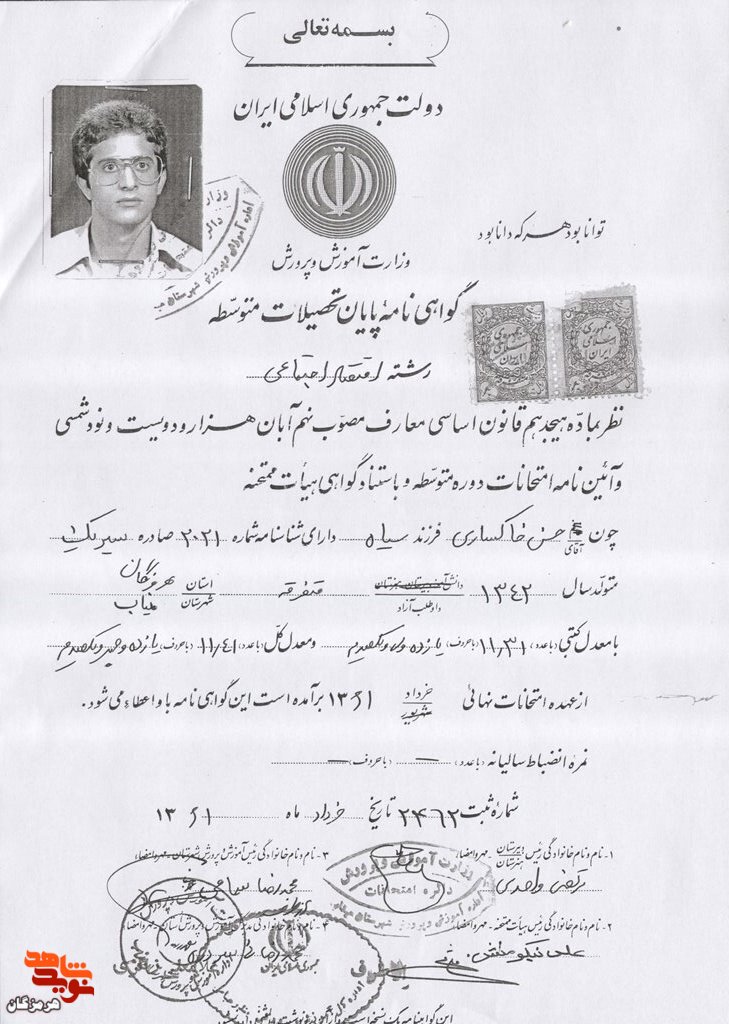 بسمه تعالی
دولت جمهوری اسلامی ایران
توانا بود هر که دانا بود
وزارت آموزش و پرورش
گواهی نامه پایان تحصیلات متوسطه
جمهوری اسلامی ایران
جمهوری اسلامی ایران
رشته اقتصاد اجتماعی
نظر بماده هیجدهم قانون اساسی معارف مصوب نهم آبان هزار و دویست و نود شمسی
و آئین نامه امتحانات دوره متوسطه و باستناد گواهی هیأت ممتحنه
چون آقای حسن خاکساری فرزند سیاه دارای شناسنامه شماره ۲۰۲۱ صادره سیریک
متولد سال ۱۳۴۲ داوطلب آزاد متفرقه استان هرمزگان شهرستان میناب
با معدل کتبی (با عدد) ۱۱/۳۱ (با حروف) یازده و سی و یکصدم و معدل کل (با عدد) ۱۱/۴۱ (با حروف) یازده و چهل و یکصدم
از عهده امتحانات نهائی خرداد شهریور ۱۳۶۱ برآمده است این گواهی نامه باو اعطاء می شود.
نمره انضباط سالیانه (با عدد) — (با حروف) —
شماره ثبت ۲۴۶۲ تاریخ خرداد ماه ۱۳۶۱
۱- نام و نام خانوادگی رئیس دبیرستان هنرستان - مهر و امضاء
۳- نام و نام خانوادگی رئیس آموزش و پرورش شهرستان - مهر و امضاء
مرتضی واحدی
محمدرضا
وزارت آموزش و پرورش
دائره امتحانات
۲- نام و نام خانوادگی رئیس هیأت ممتحنه - مهر و امضاء
علی نیکو منش
شاهد
نوید
هرمزگان